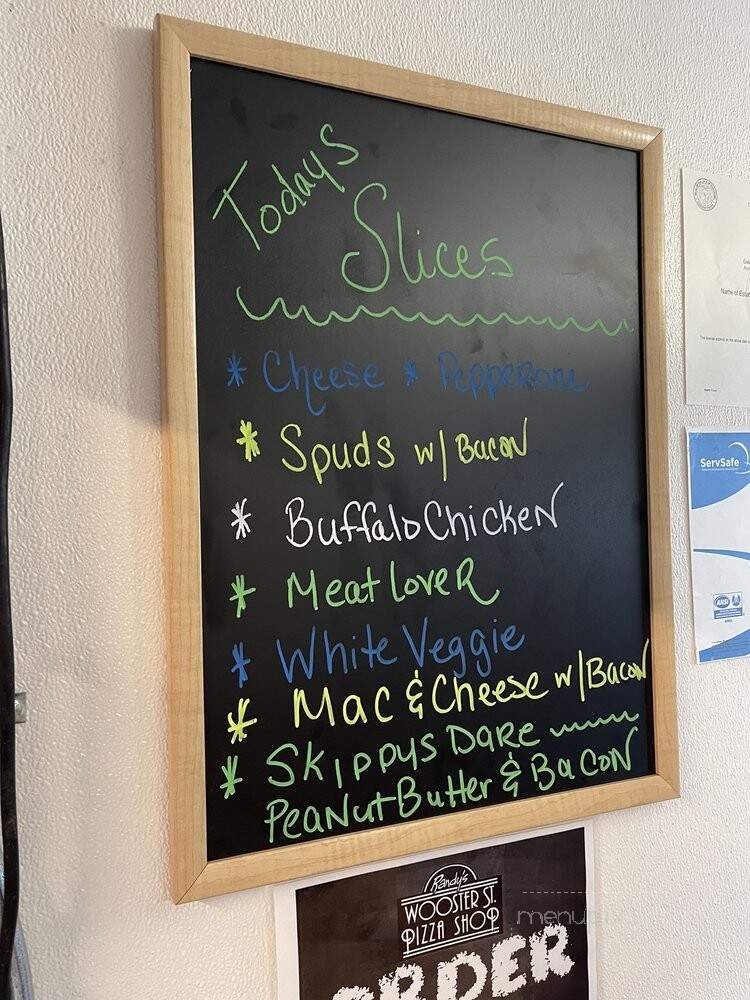 Todays
Slices
* Cheese * Pepperoni
* Spuds w/ Bacon
* Buffalo Chicken
* Meat Lover
* White Veggie
* Mac & Cheese w/ Bacon
* Skippys Dare
Peanut Butter & Bacon
Name of Estab
ServSafe
ANSI
Randy's
WOOSTER ST.
PIZZA SHOP
ORDER